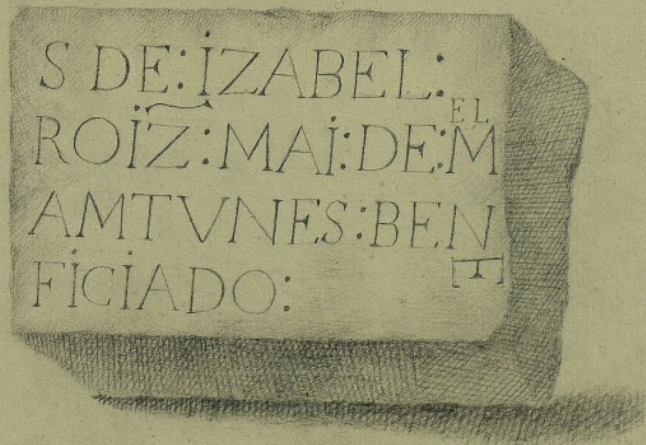 S DE:İZABEL:
ROİZ:MAİ:DE:Mᴱᴸ
AMTVNES:BEN
FİCİADO: